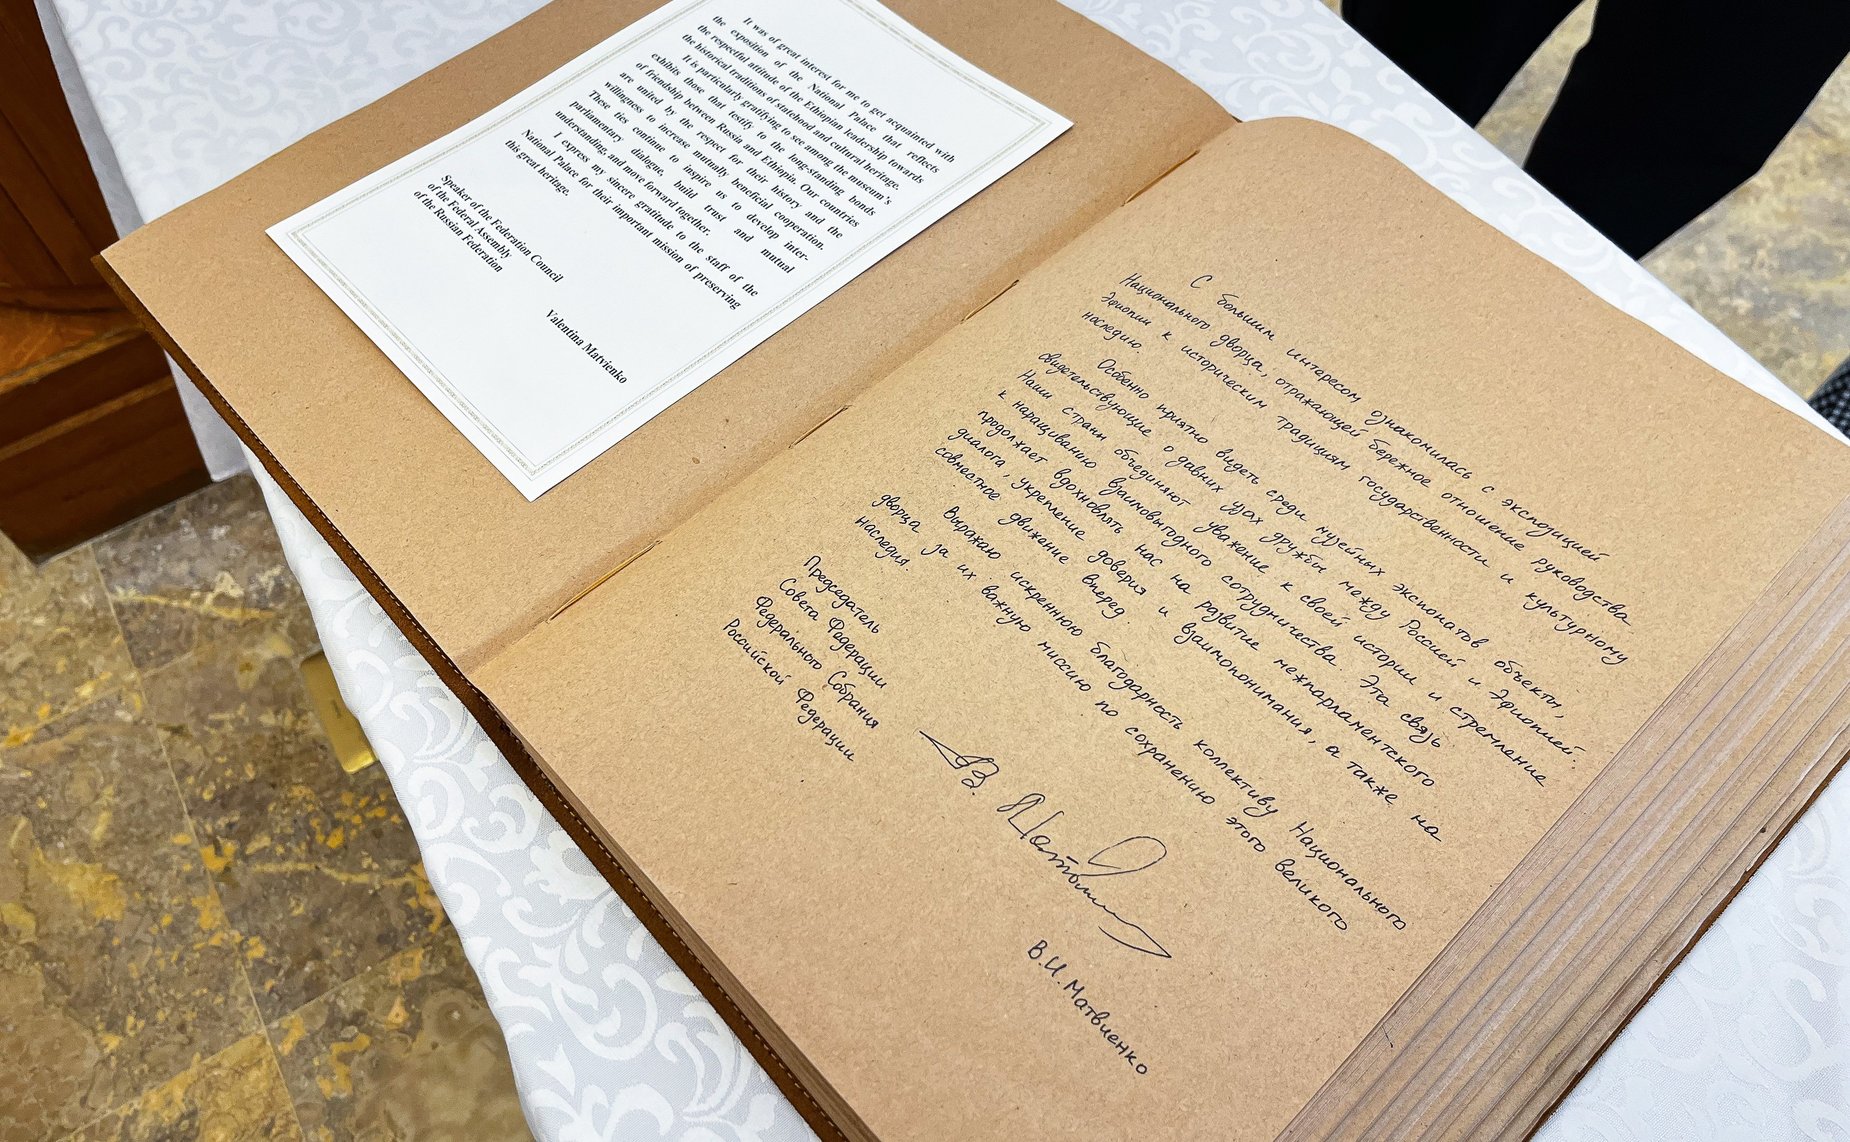 It was of great interest for me to get acquainted with
the exposition of the National Palace that reflects
the respectful attitude of the Ethiopian leadership towards
the historical traditions of statehood and cultural heritage.
It is particularly gratifying to see among the museum's
exhibits those that testify to the long-standing bonds
of friendship between Russia and Ethiopia. Our countries
are united by the respect for their history and the
willingness to increase mutually beneficial cooperation.
These ties continue to inspire us to develop inter-
parliamentary dialogue, build trust and mutual
understanding, and move forward together.
I express my sincere gratitude to the staff of the
National Palace for their important mission of preserving
this great heritage.
Speaker of the Federation Council
of the Federal Assembly
of the Russian Federation
Valentina Matvienko
С большим интересом ознакомилась с экспозицией
Национального дворца, отражающей бережное отношение руководства
Эфиопии к историческим традициям государственности и культурному
наследию.
Особенно приятно видеть среди музейных экспонатов объекты,
свидетельствующие о давних узах дружбы между Россией и Эфиопией.
Наши страны объединяют уважение к своей истории и стремление
к наращиванию взаимовыгодного сотрудничества. Эта связь
продолжает вдохновлять нас на развитие межпарламентского
диалога, укрепление доверия и взаимопонимания, а также на
совместное движение вперед.
Выражаю искреннюю благодарность коллективу Национального
дворца за их важную миссию по сохранению этого великого
наследия.
Председатель
Совета Федерации
Федерального Собрания
Российской Федерации
В.И.Матвиенко